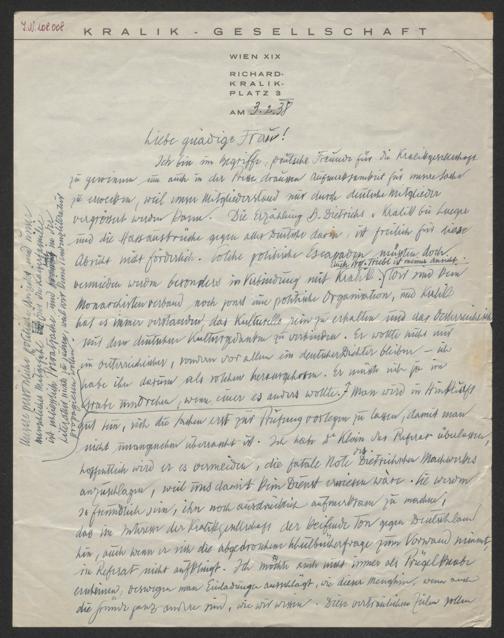 J.N. 108.008
KRALIK - GESELLSCHAFT
WIEN XIX
RICHARD-
KRALIK-
PLATZ 3
AM 3.2.38
Liebe gnädige Frau!
Ich bin im Begriffe, deutsche Freunde für die Kralikgesellschaft
zu gewinnen, um auch in der Presse draussen Aufmerksamkeit für unsere Sache
zu erwecken, weil unser Mitgliederstand nur durch deutsche Mitglieder
vergrössert werden kann. Die Erzählung D. Dietrichs v. Kralik bei Lueger
und die Hassausbrüche gegen alles Deutsche darin, ist freilich für diese
Absicht nicht förderlich. Solche politische Escapaden müssten doch
vermieden werden besonders in Verbindung mit Kralik.
auch Hfr. Thiebl ist meiner Ansicht.
sind dem
Monarchistenverband, noch sonst eine politische Organisation, und Kralik
hat es immer verstanden, das Kulturelle rein zu erhalten und das Oesterreichische
mit dem deutschen Kulturgedanken zu verbinden. Er wollte nicht nur
ein österreichischer, sondern vor allem ein deutscher Dichter bleiben – ich
habe ihn darum als solchen herausgehoben. Er würde sich ja im
Grabe umdrehen, wenn einer es anders wollte. Man wird in Hinkunft
gut tun, sich die Sachen erst zur Prüfung vorlegen zu lassen, damit man
nicht unangenehm überrascht ist. Ich habe Dr Klein das Referat überlassen,
hoffentlich wird er es vermeiden, die fatale Note des Dietrichschen Machwerkes
anzuschlagen, weil uns damit kein Dienst erwiesen wäre. Sie werden
so freundlich sein, ihn noch ausdrücklich aufmerksam zu machen,
das im Interesse der Kralikgesellschaft der keifende Ton gegen Deutschland
hin, auch wenn er sich die abgedroschene Schulbücherfrage zum Vorwand nimmt,
im Referat nicht aufklingt. Ich möchte auch nicht immer als Prügelknabe
erscheinen, deswegen man Einladungen ausschlägt, wie dieser Menghin, wenn auch
die Gründe ganz andere sind, wie wir wissen. Diese vertraulichen Zeilen sollen
unsere persönliche politische Ansicht und jene
ist schliesslich Privatsache und in die
Literatur nicht zu